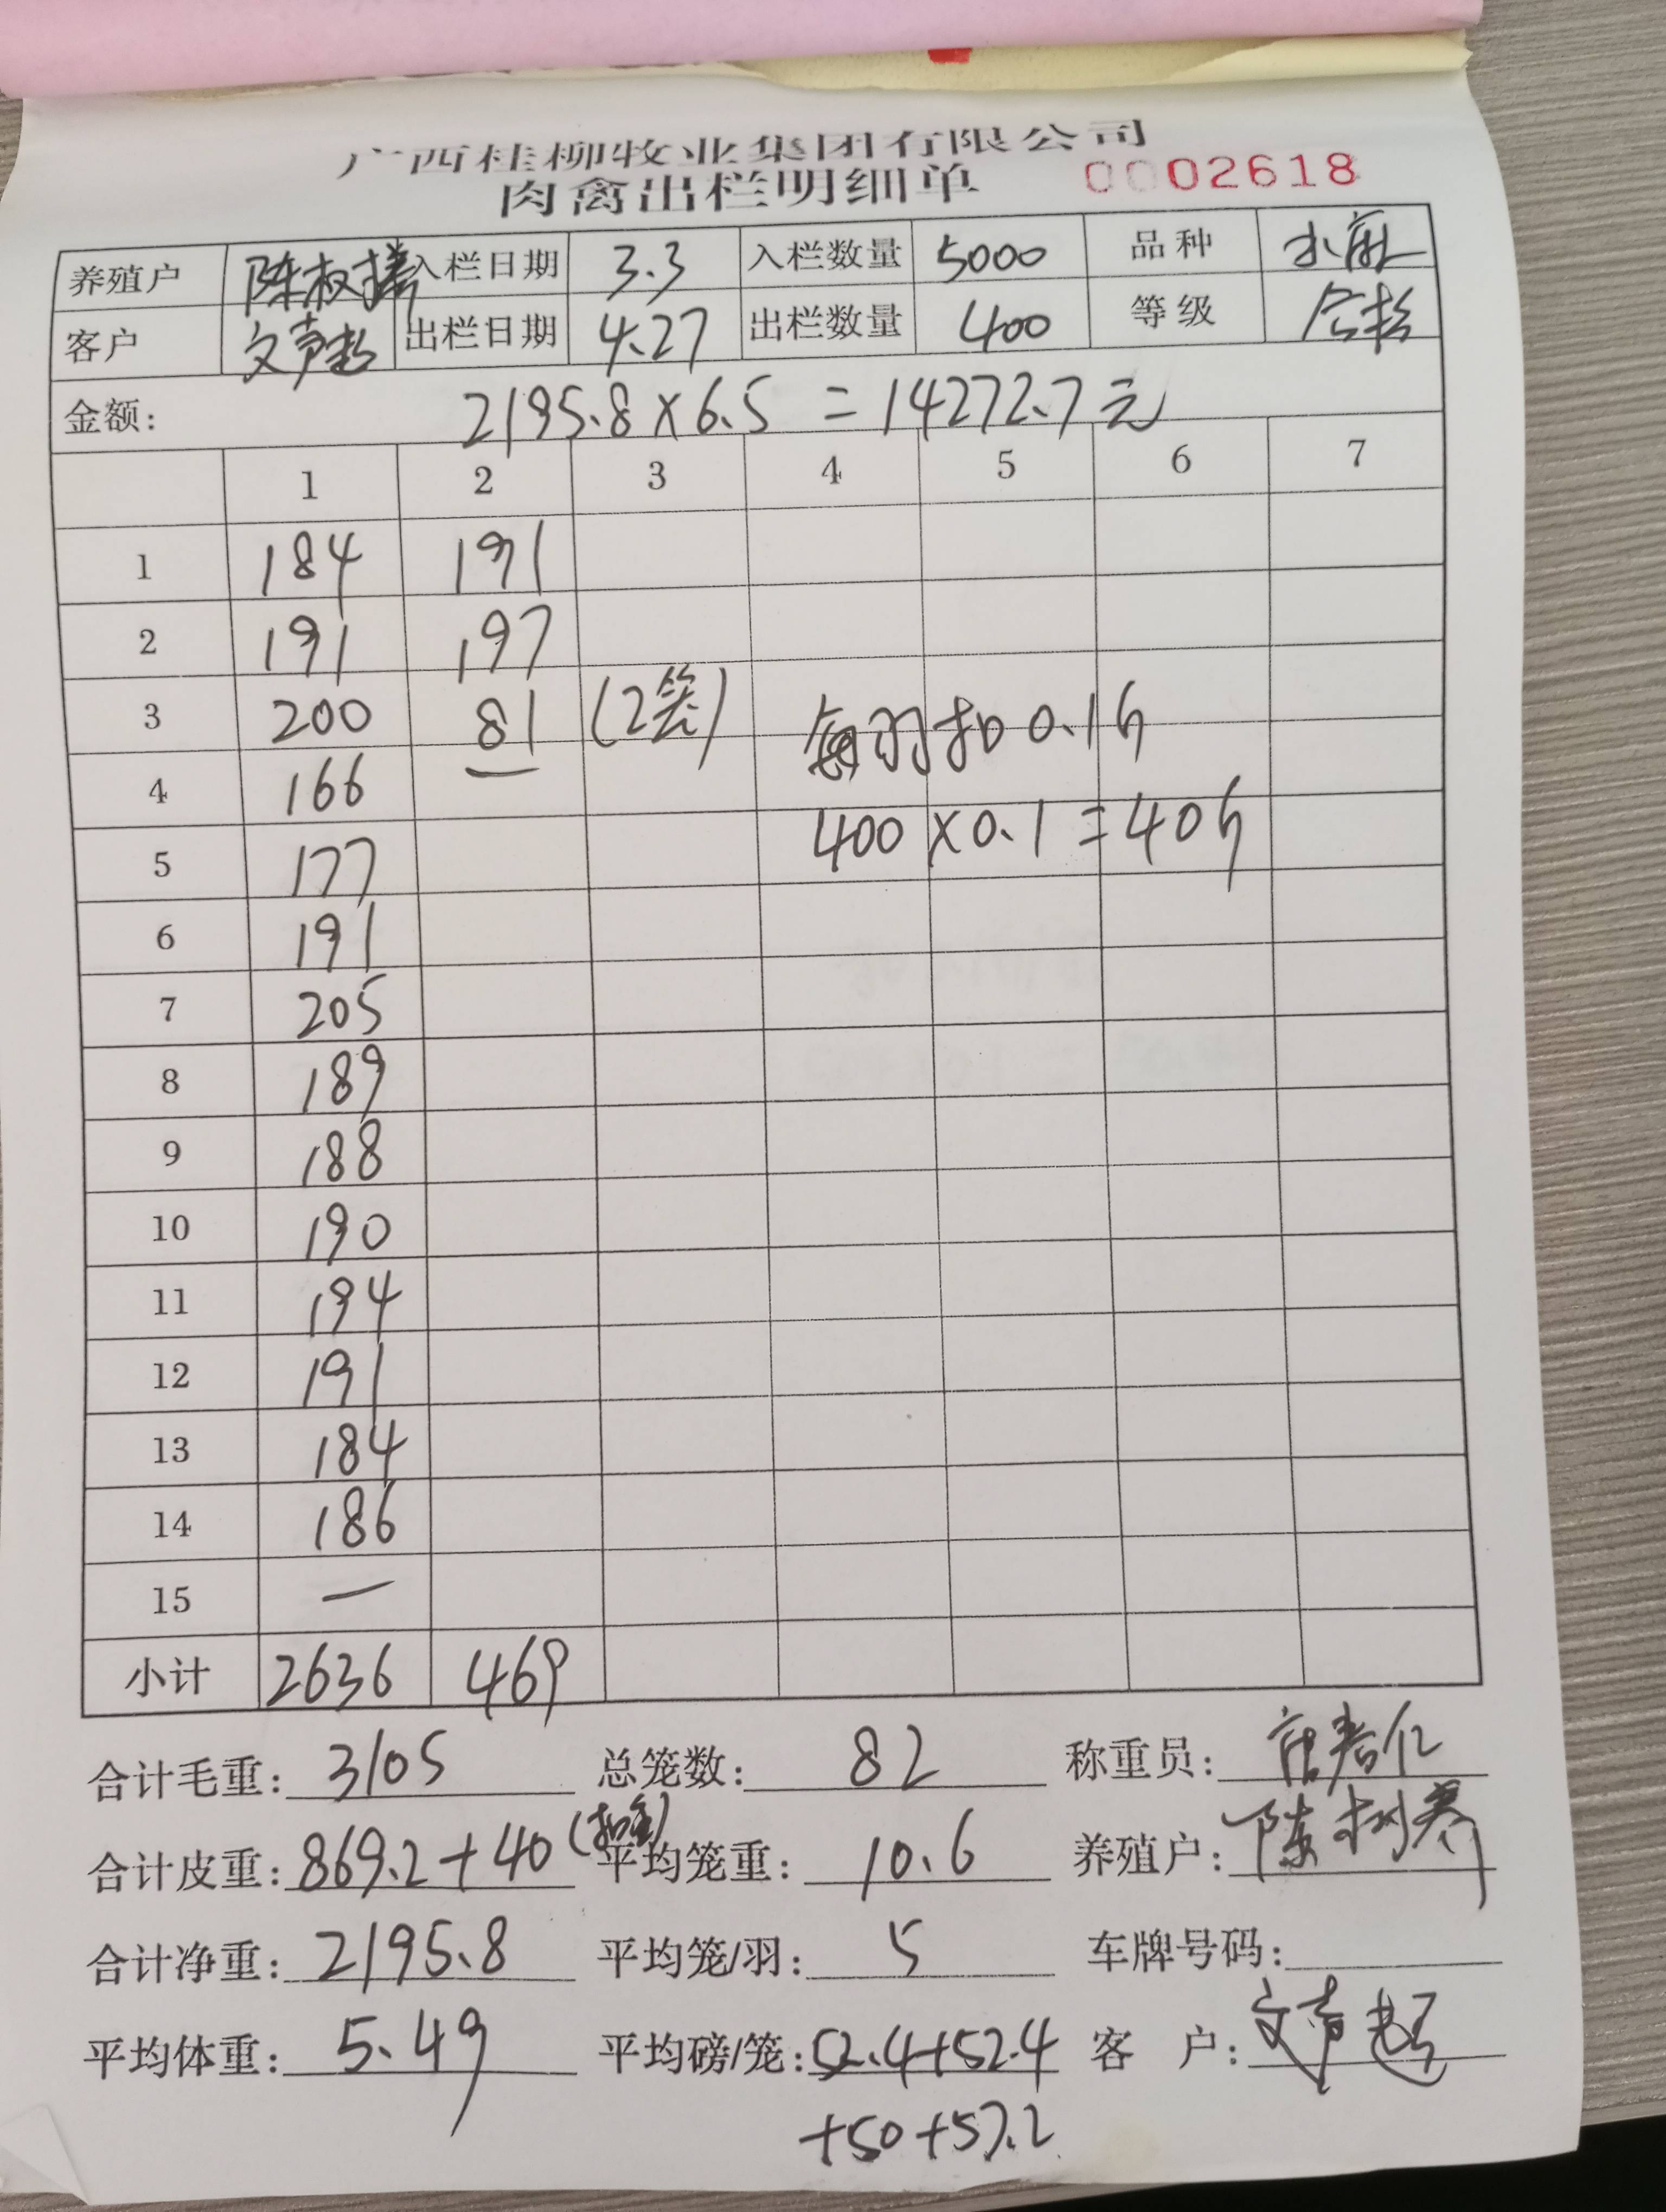 广西桂柳牧业集团有限公司
肉禽出栏明细单 0002618
养殖户 陈 入栏日期 3.3 入栏数量 5000 品种
客户 文声 出栏日期 4.27 出栏数量 400 等级 合
金额: 2195.8×6.5=14272.7元
1 2 3 4 5 6 7
1 184 191
2 191 197
3 200 81 (2笼) 每羽扣0.1斤
4 166 —
5 177 400×0.1=40斤
6 191
7 205
8 189
9 188
10 190
11 194
12 191
13 184
14 186
15 —
小计 2636 469
合计毛重: 3105 总笼数: 82 称重员:
合计皮重: 869.2+40 平均笼重: 10.6 养殖户: 陈树养
合计净重: 2195.8 平均笼/羽: 5 车牌号码:
平均体重: 5.49 平均磅/笼: 52.4+52.4 客 户: 文声超
+50+57.2